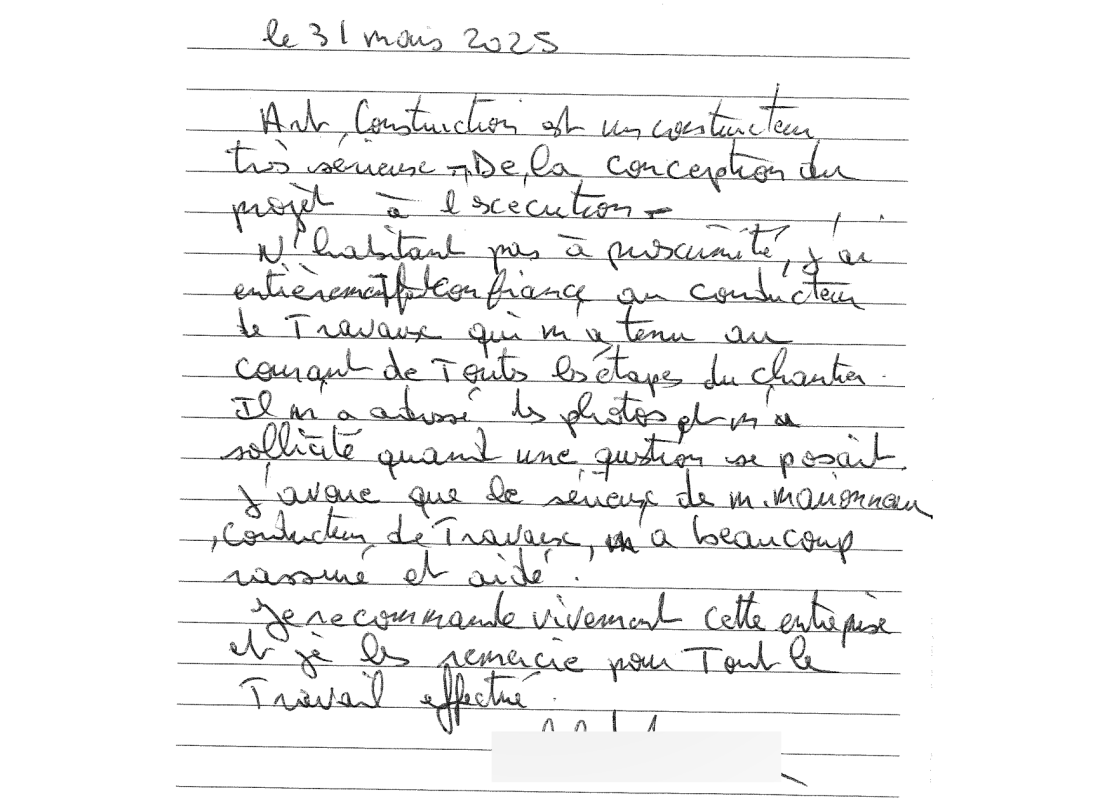 le 31 mars 2025
Art Construction est un constructeur
très sérieux - De la conception du
projet à l'exécution -
N'habitant pas à proximité, j'ai
entièrement fait confiance au conducteur
de Travaux qui m'a tenu au
courant de Toutes les étapes du chantier.
Il m'a adressé des photos et m'a
sollicité quand une question se posait.
J'avoue que le sérieux de m. marionneau
, conducteur de Travaux, m'a beaucoup
rassuré et aidé.
Je recommande vivement cette entreprise
et je les remercie pour Tout le
Travail effectué.